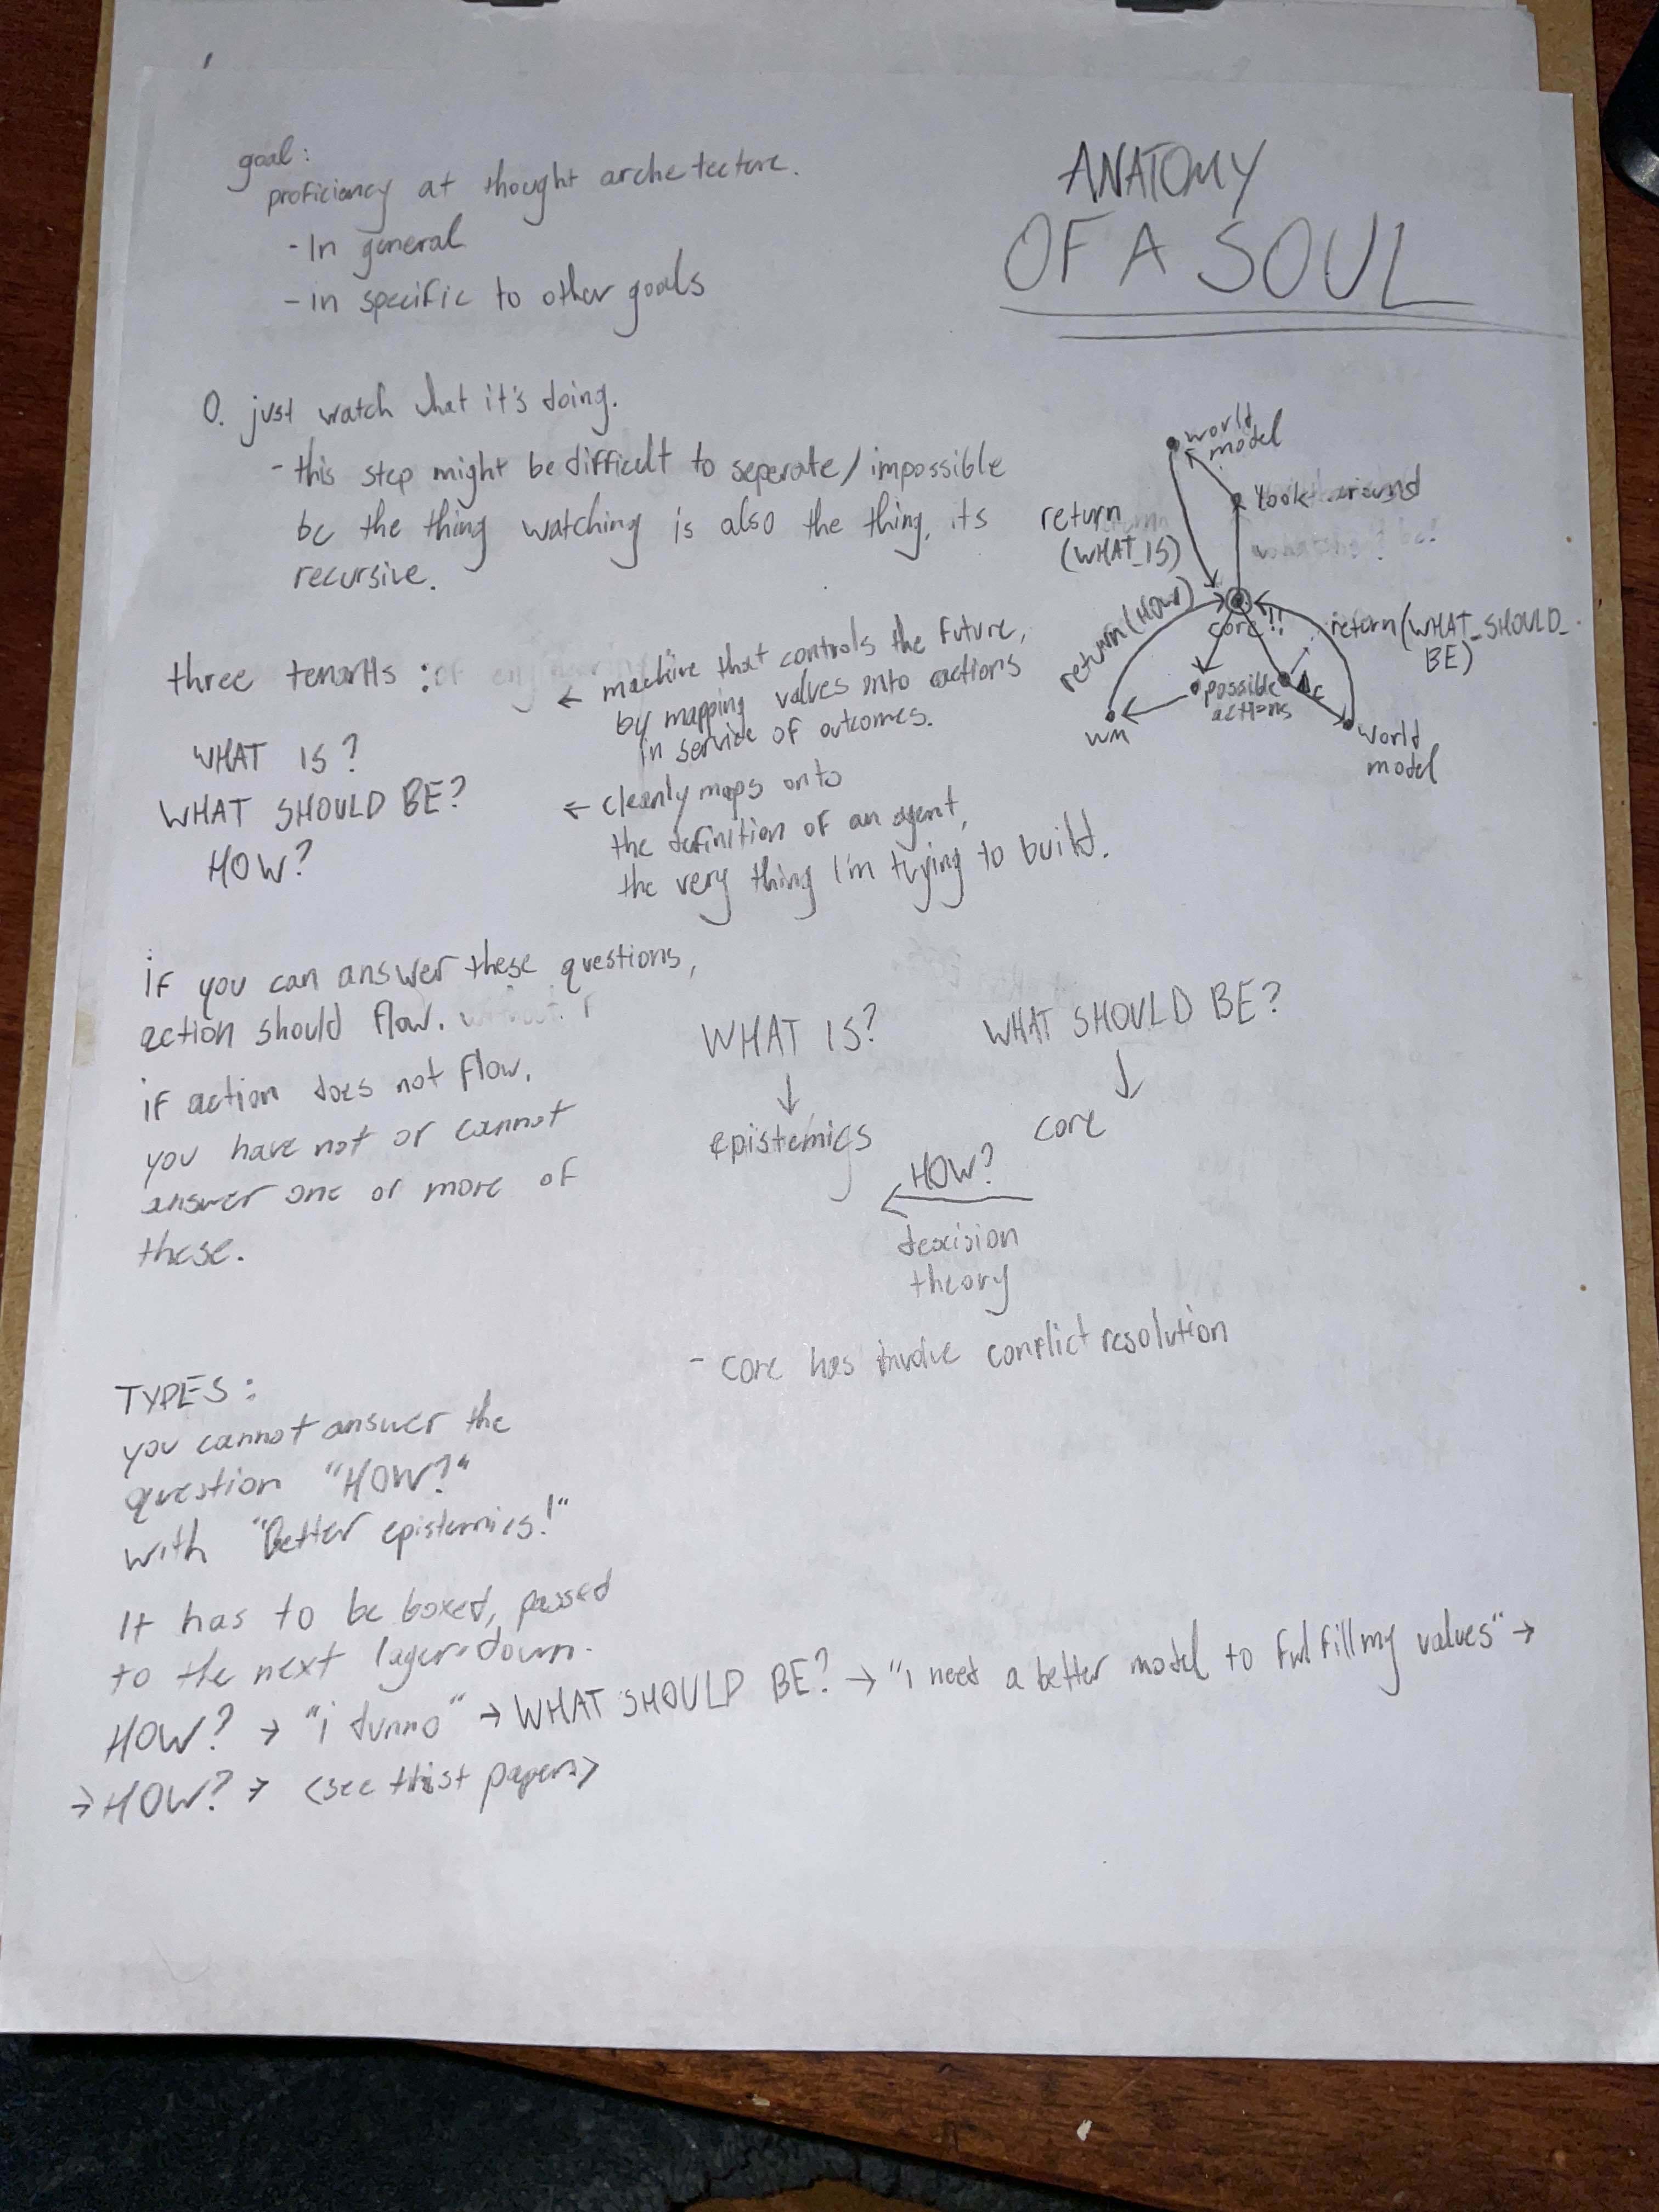 ANATOMY
OF A SOUL
goal:
proficiency at thought archetecture.
- In general
- in specific to other goals
0. just watch what it's doing.
- this step might be difficult to seperate/impossible
bc the thing watching is also the thing, its
recursive.
world
model
look around
return
(WHAT_IS)
return(HOW)
core!!
return(WHAT_SHOULD_
BE)
possible
actions
Δc
wm
world
model
three tenants:
WHAT IS?
WHAT SHOULD BE?
HOW?
← machine that controls the future,
by mapping values onto actions
in service of outcomes.
← cleanly maps onto
the definition of an agent,
the very thing I'm trying to build.
if you can answer these questions,
action should flow.
if action does not flow,
you have not or cannot
answer one or more of
these.
WHAT IS?
↓
epistemics
WHAT SHOULD BE?
↓
core
HOW?
←
descision
theory
- core has involve conflict resolution
TYPES:
you cannot answer the
question "HOW?"
with "Better epistemics!"
It has to be boxed, passed
to the next layer down.
HOW? → "i dunno" → WHAT SHOULD BE? → "i need a better model to fulfill my values" →
→ HOW? → (see this paper)